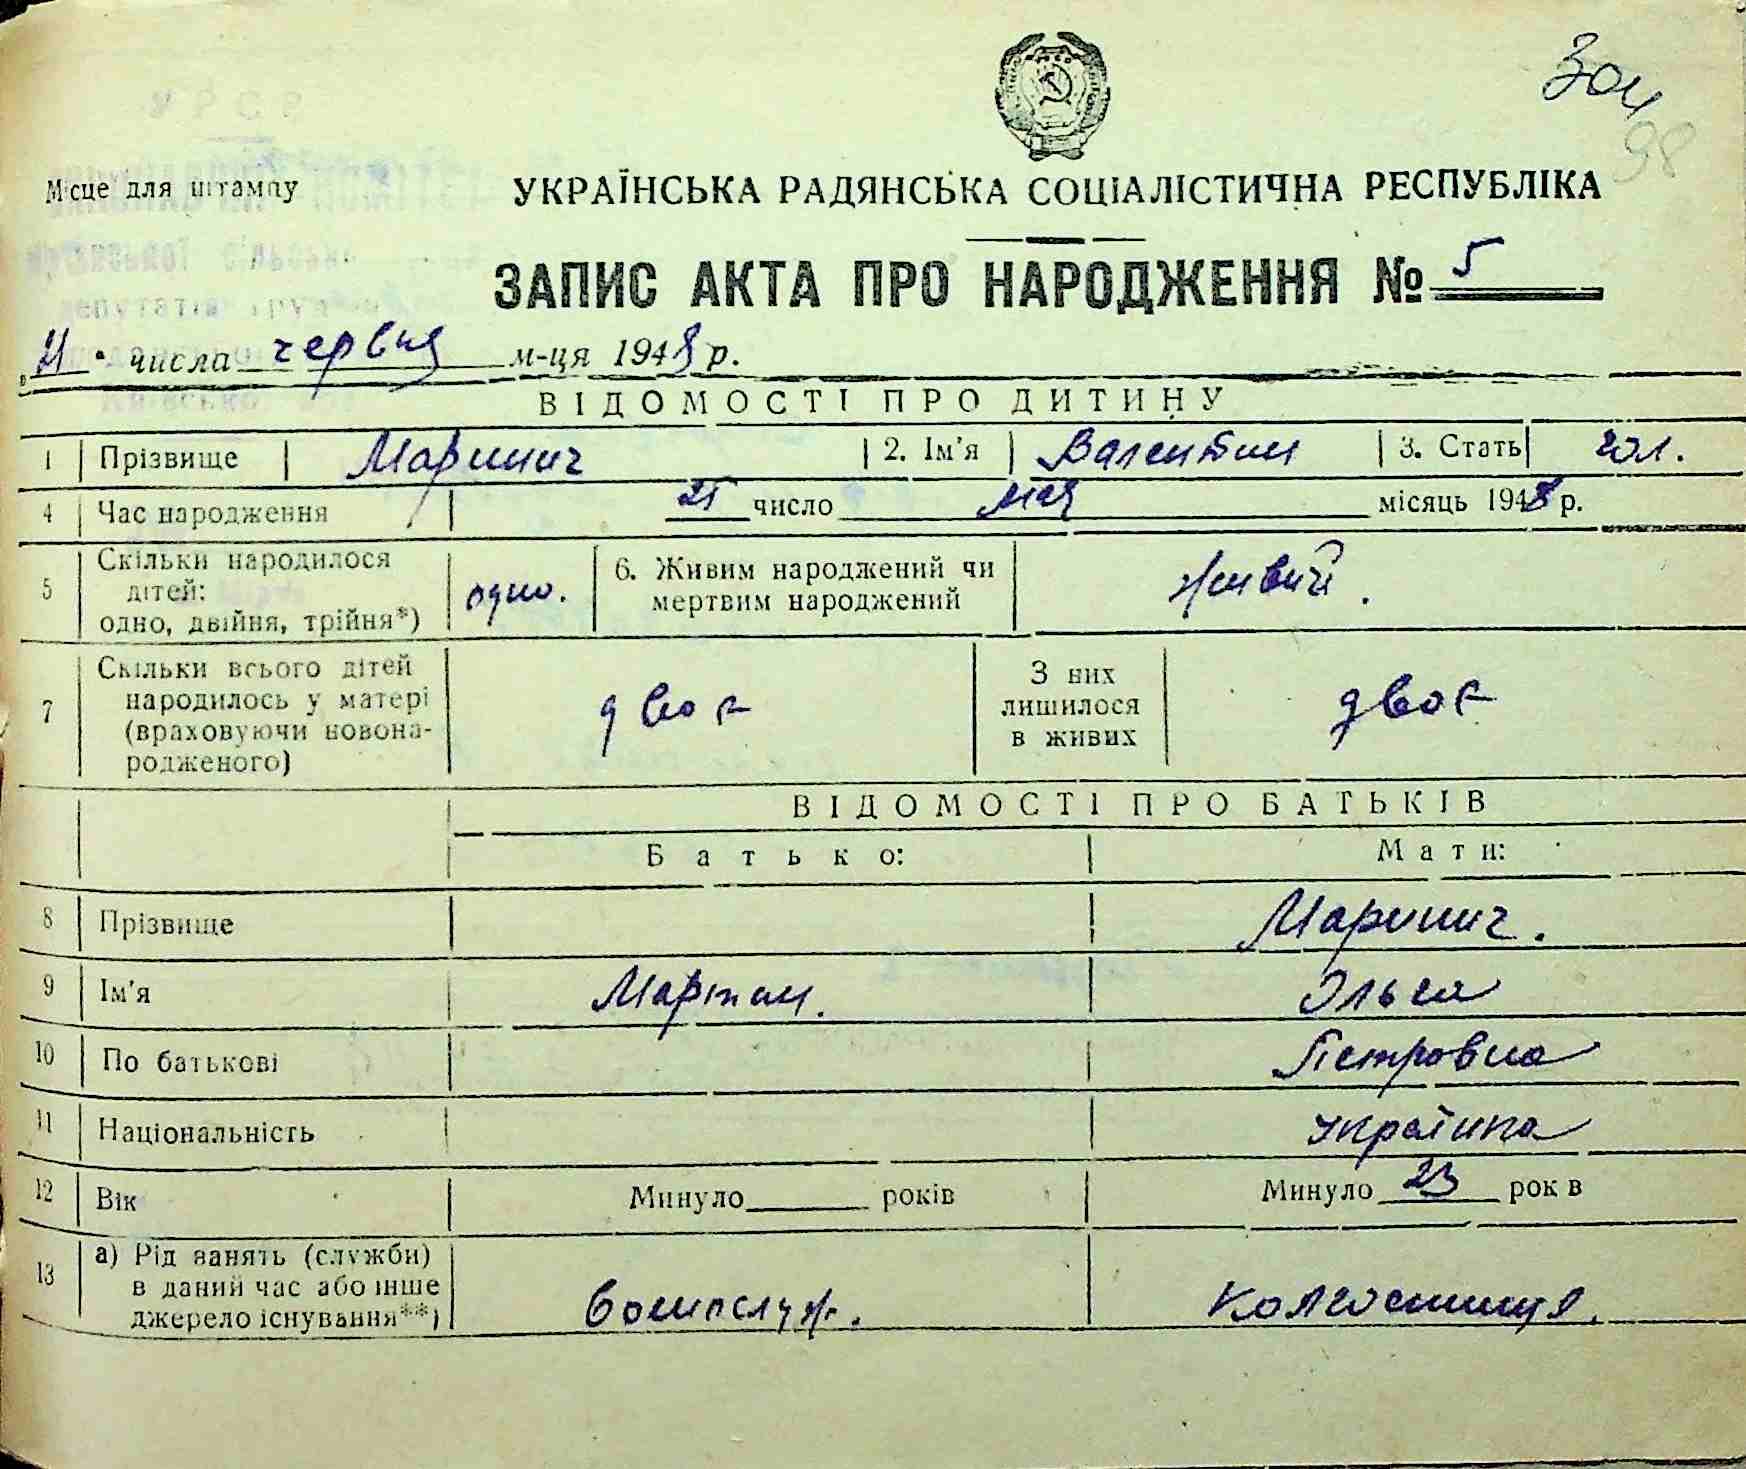 Зои
98
Місце для штампу
УКРАЇНСЬКА РАДЯНСЬКА СОЦІАЛІСТИЧНА РЕСПУБЛІКА
ЗАПИС АКТА ПРО НАРОДЖЕННЯ № 5
"11" числа червня м-ця 1948 р.
ВІДОМОСТІ ПРО ДИТИНУ
1 Прізвище Маринич 2. Ім'я Валентин 3. Стать чол.
4 Час народження число мая місяць 1948 р.
5 Скільки народилося дітей: одно, двійня, трійня*) одно. 6. Живим народжений чи мертвим народжений живий.
7 Скільки всього дітей народилось у матері (враховуючи новонародженого) двоє З них лишилося в живих двоє
ВІДОМОСТІ ПРО БАТЬКІВ
Батько: Мати:
8 Прізвище Маринич.
9 Ім'я Мартин. Ольга
10 По батькові Петровна
11 Національність українка
12 Вік Минуло років Минуло 23 рок в
13 а) Рід занять (служби) в даний час або інше джерело існування**) колгоспниця.